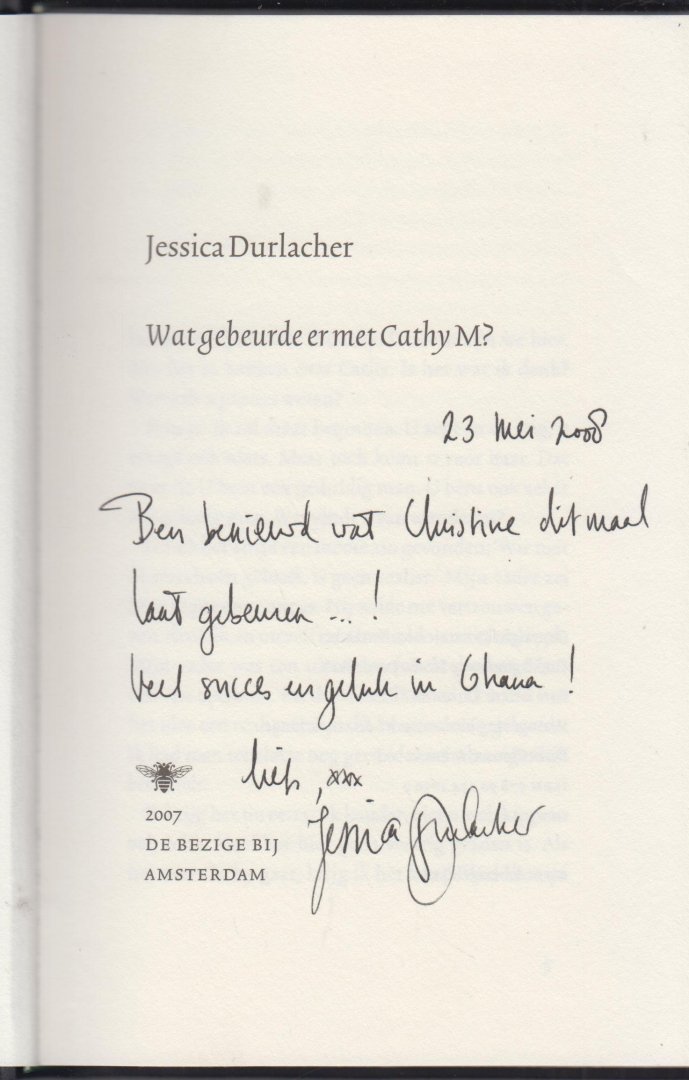 Jessica Durlacher
Wat gebeurde er met Cathy M?
23 mei 2008
Ben benieuwd wat Christine ditmaal
laat gebeuren ...!
Veel succes en geluk in Ghana!
liefs, xxx
Jessica Durlacher
2007
DE BEZIGE BIJ
AMSTERDAM